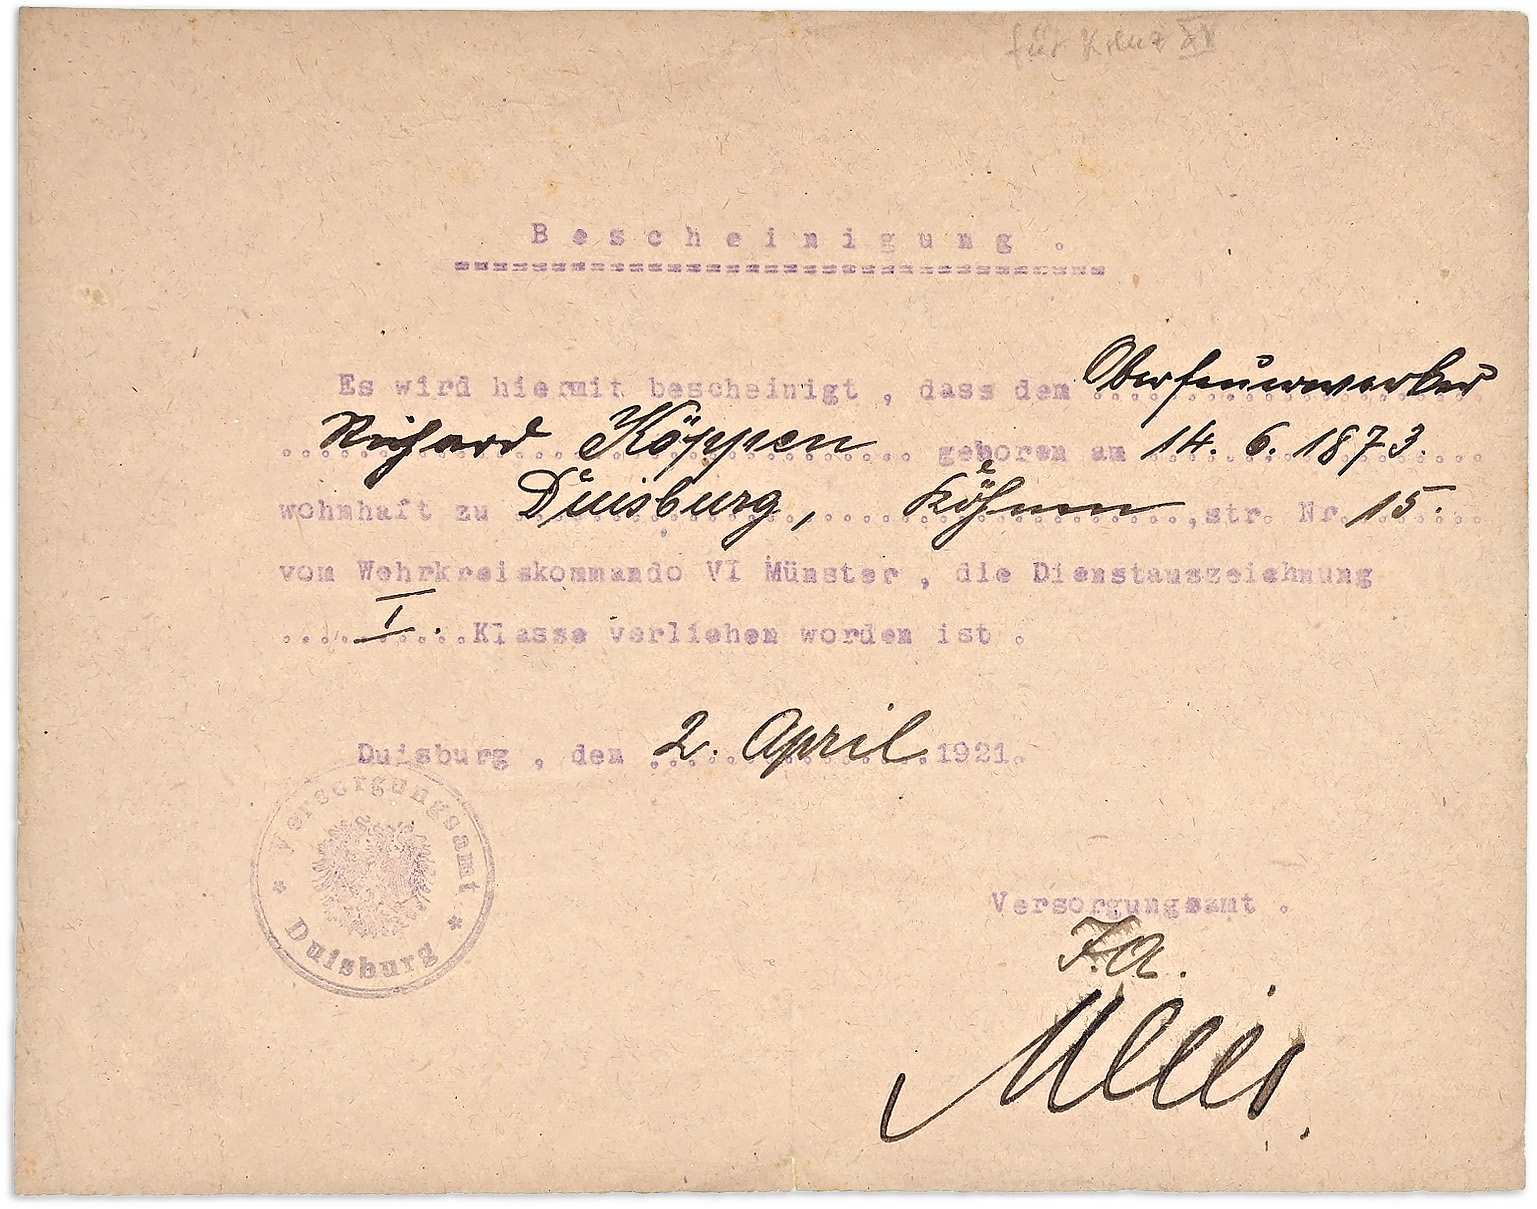 für Kreuz XV
Bescheinigung.
Es wird hiermit bescheinigt, dass dem Oberfeuerwerker
Richard Köppen geboren am 14. 6. 1873.
wohnhaft zu Duisburg, Köhnen, str. Nr. 15.
vom Wehrkreiskommando VI Münster, die Dienstauszeichnung
I. Klasse verliehen worden ist.
Duisburg, den 2. April 1921.
Versorgungsamt
Duisburg
Versorgungsamt.
I.A.